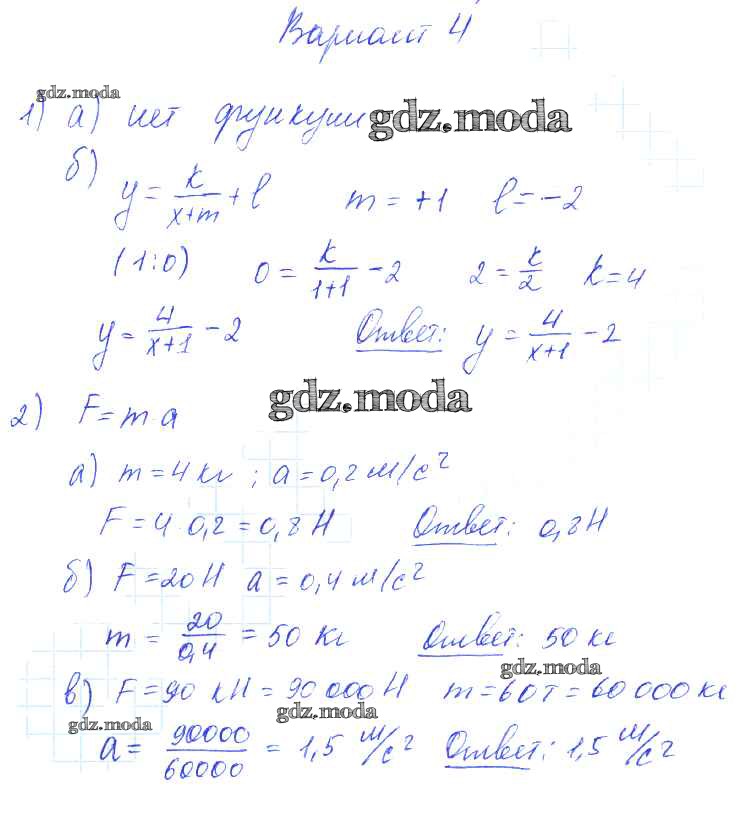 Вариант 4
gdz.moda
1) а) нет функции gdz.moda
б) y = k/(x+m) + l   m = +1   l = -2
(1:0)   0 = k/(1+1) - 2   2 = k/2   k = 4
y = 4/(x+1) - 2   Ответ: y = 4/(x+1) - 2
gdz.moda
2) F = m a
а) m = 4 кг ; a = 0,2 м/с²
F = 4 · 0,2 = 0,8 Н   Ответ: 0,8 Н
б) F = 20 Н   a = 0,4 м/с²
m = 20/0,4 = 50 кг   Ответ: 50 кг
gdz.moda
в) F = 90 кН = 90 000 Н   m = 60 т = 60 000 кг
gdz.moda gdz.moda
a = 90000/60000 = 1,5 м/с²   Ответ: 1,5 м/с²